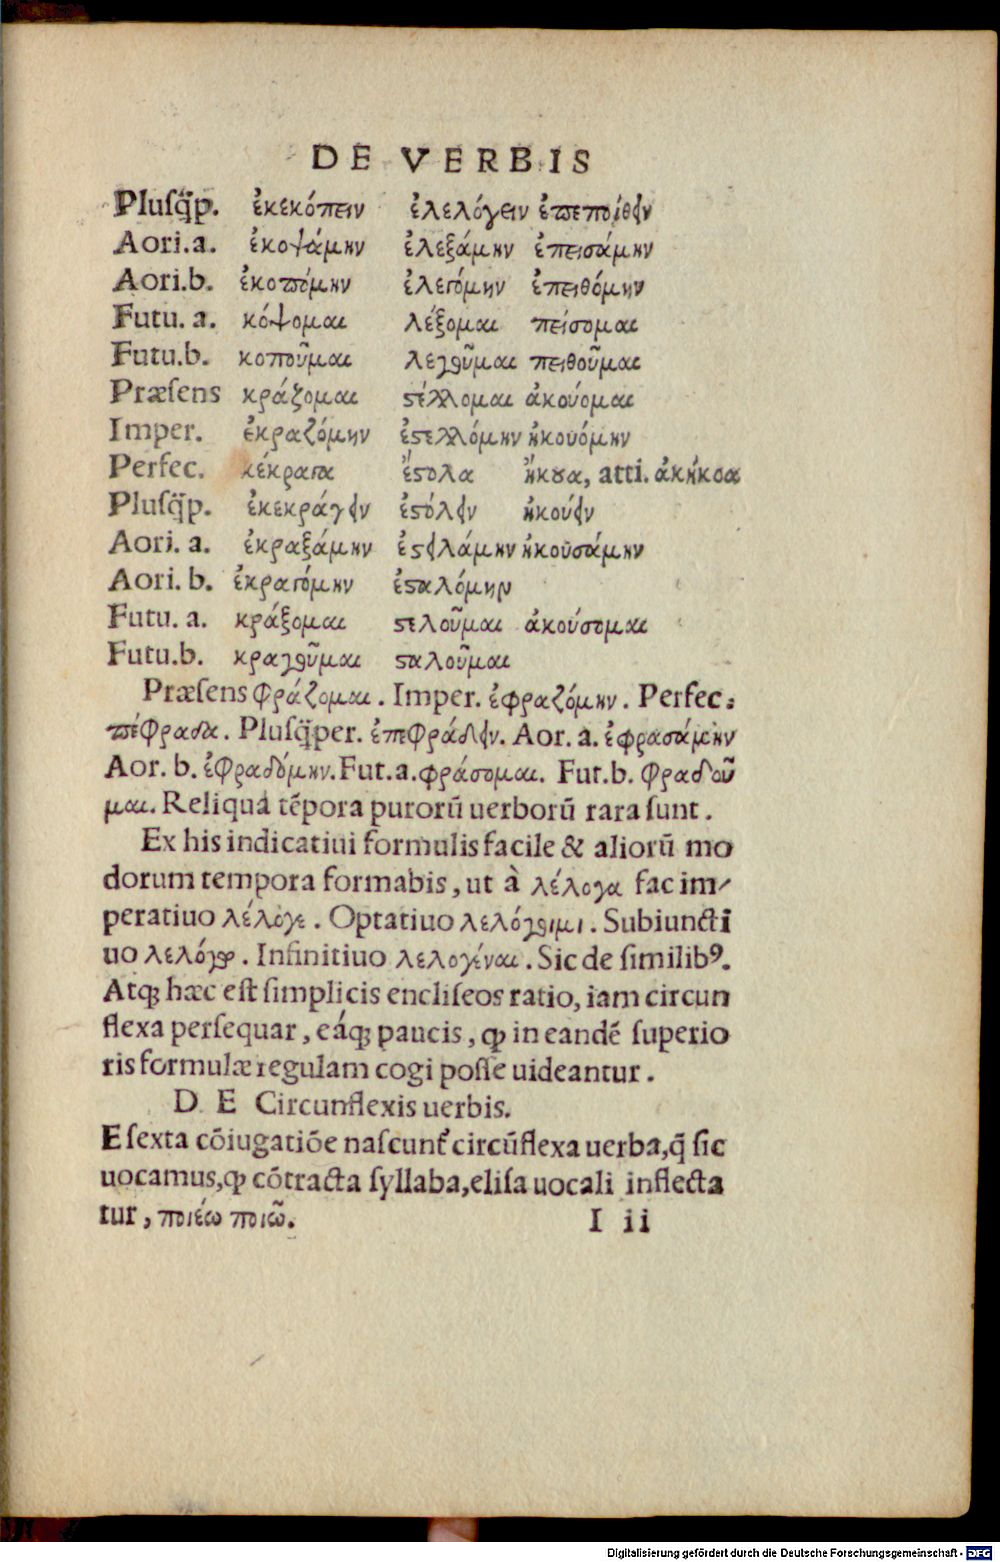 DE VERBIS
Plusq̃p. ἐκεκόπειν ἐλελόγειν ἐπεποίθειν
Aori.a. ἐκοψάμην ἐλεξάμην ἐπεισάμην
Aori.b. ἐκοπόμην ἐλεγόμην ἐπειθόμην
Futu. a. κόψομαι λέξομαι πείσομαι
Futu.b. κοποῦμαι λεγοῦμαι πειθοῦμαι
Præsens κράζομαι στέλλομαι ἀκούομαι
Imper. ἐκραζόμην ἐστελλόμην ἠκουόμην
Perfec. κέκραγα ἔστολα ἤκουα, atti. ἀκήκοα
Plusq̃p. ἐκεκράγειν ἐστόλειν ἠκούειν
Aori. a. ἐκραξάμην ἐστειλάμην ἠκουσάμην
Aori. b. ἐκραγόμην ἐσταλόμην
Futu. a. κράξομαι στελοῦμαι ἀκούσομαι
Futu.b. κραγοῦμαι σταλοῦμαι
Præsens φράζομαι. Imper. ἐφραζόμην. Perfec.
πέφραδα. Plusq̃per. ἐπεφράδειν. Aor. a. ἐφρασάμην
Aor. b. ἐφραδόμην. Fut.a. φράσομαι. Fut.b. φραδοῦ
μαι. Reliqua tẽpora purorũ uerborũ rara sunt.
Ex his indicatiui formulis facile & aliorũ mo
dorum tempora formabis, ut à λέλογα fac im⸗
peratiuo λέλογε. Optatiuo λελόγοιμι. Subiuncti
uo λελόγω. Infinitiuo λελογέναι. Sic de similibꝰ.
Atq; hæc est simplicis encliseos ratio, iam circun
flexa persequar, eáq; paucis, ꝙ in eandẽ superio
ris formulæ regulam cogi posse uideantur.
DE Circunflexis uerbis.
E sexta cõiugatiõe nascunt᷑ circũflexa uerba, q̃ sic
uocamus, ꝙ cõtracta syllaba, elisa uocali inflecta
tur, ποιέω ποιῶ. I ii
Digitalisierung gefördert durch die Deutsche Forschungsgemeinschaft - DFG